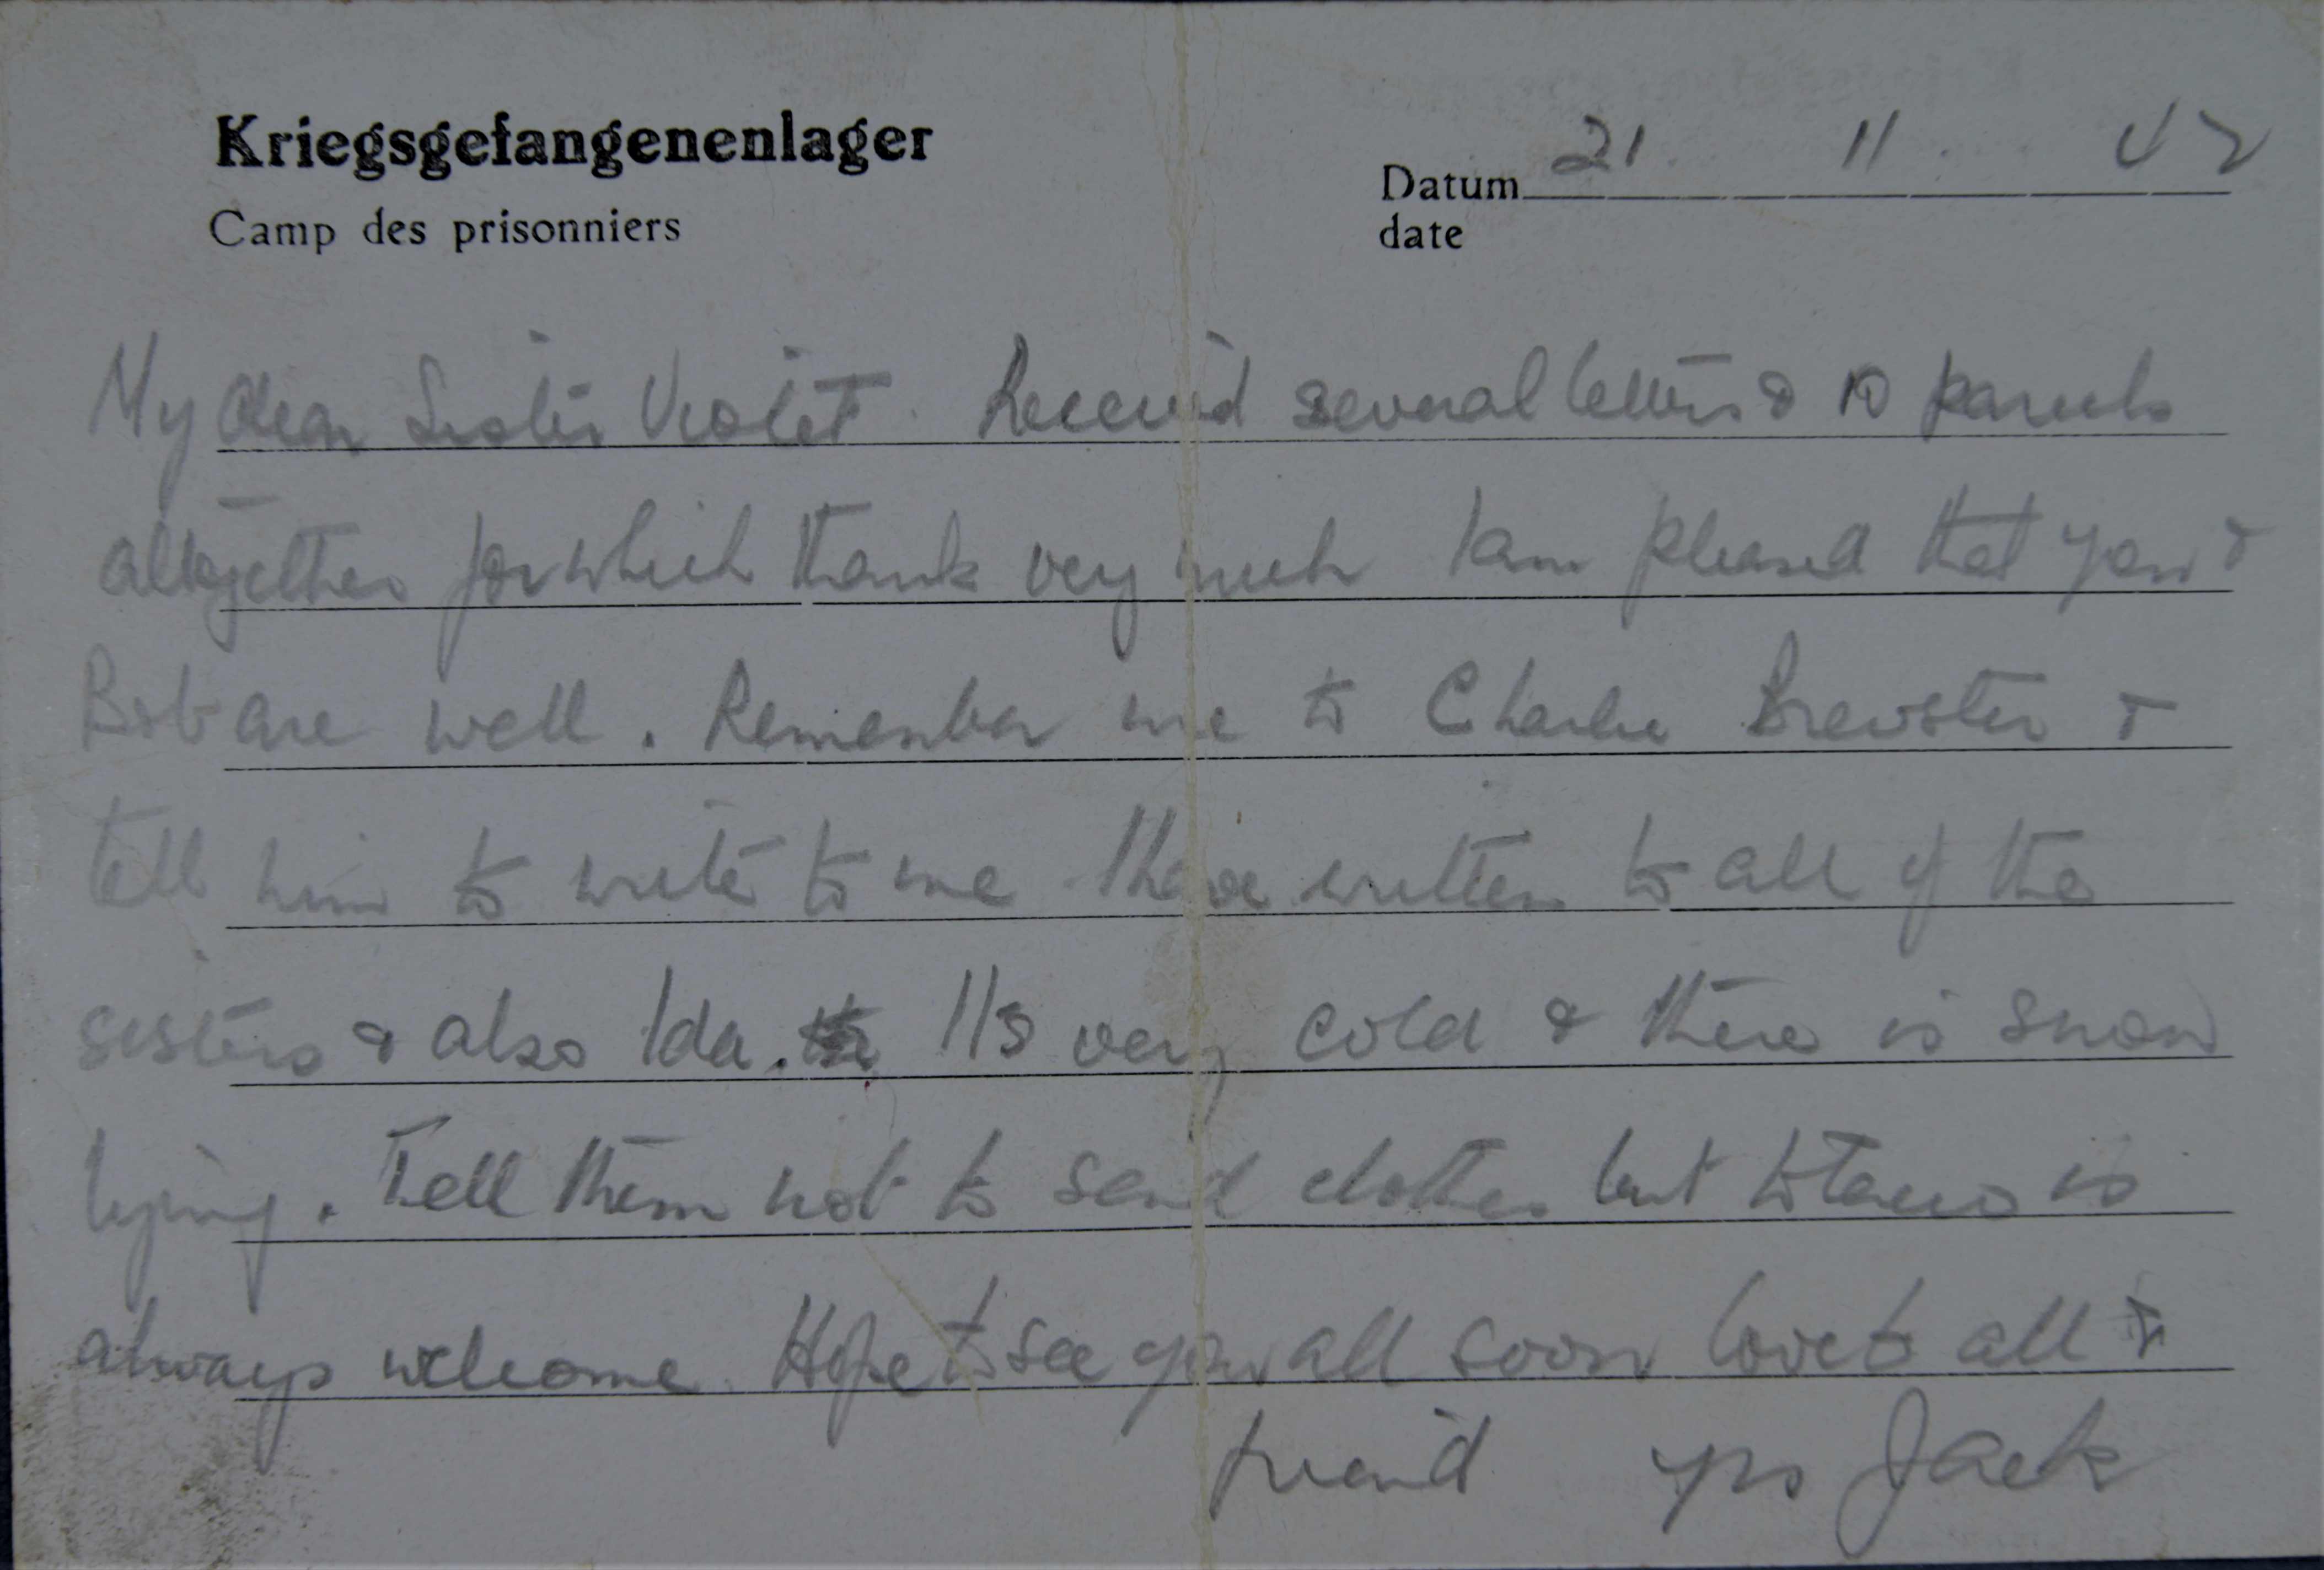 Kriegsgefangenenlager
Camp des prisonniers
Datum 21. 11. 42
date
My dear Sister Violet. Received several letters & 10 parcels
altogether for which thank very much I am pleased that you &
Bob are well. Remember me to Charlie Brewster &
tell him to write to me. I have written to all of the
sisters & also Ida. Its very cold & there is snow
lying. Tell them not to send clothes but tobacco is
always welcome. Hope to see you all soon love to all &
friend yrs Jack